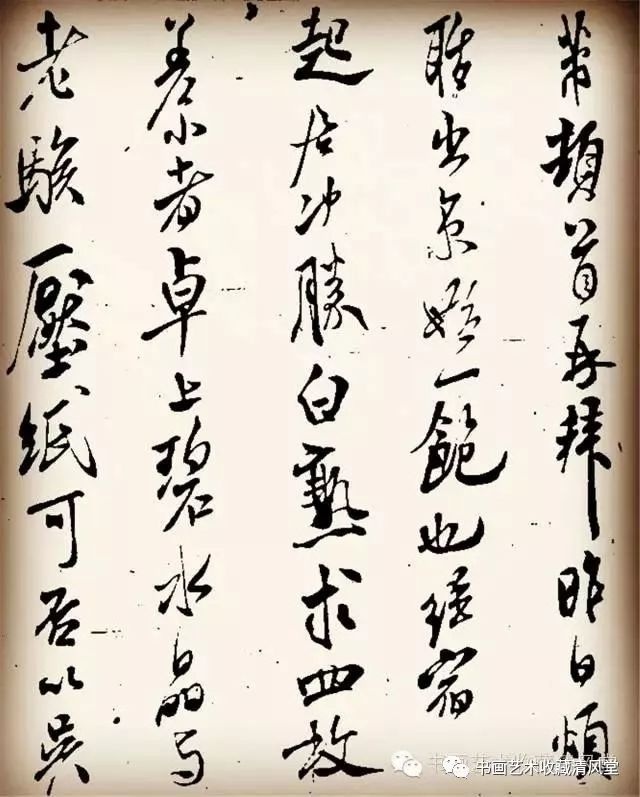 芾頓首再拜昨日煩
出京始一飽也經宿
起居冲勝白熟求四枚
差小者卓上碧水晶與
老壓紙可否以吳
书画艺术收藏清风堂